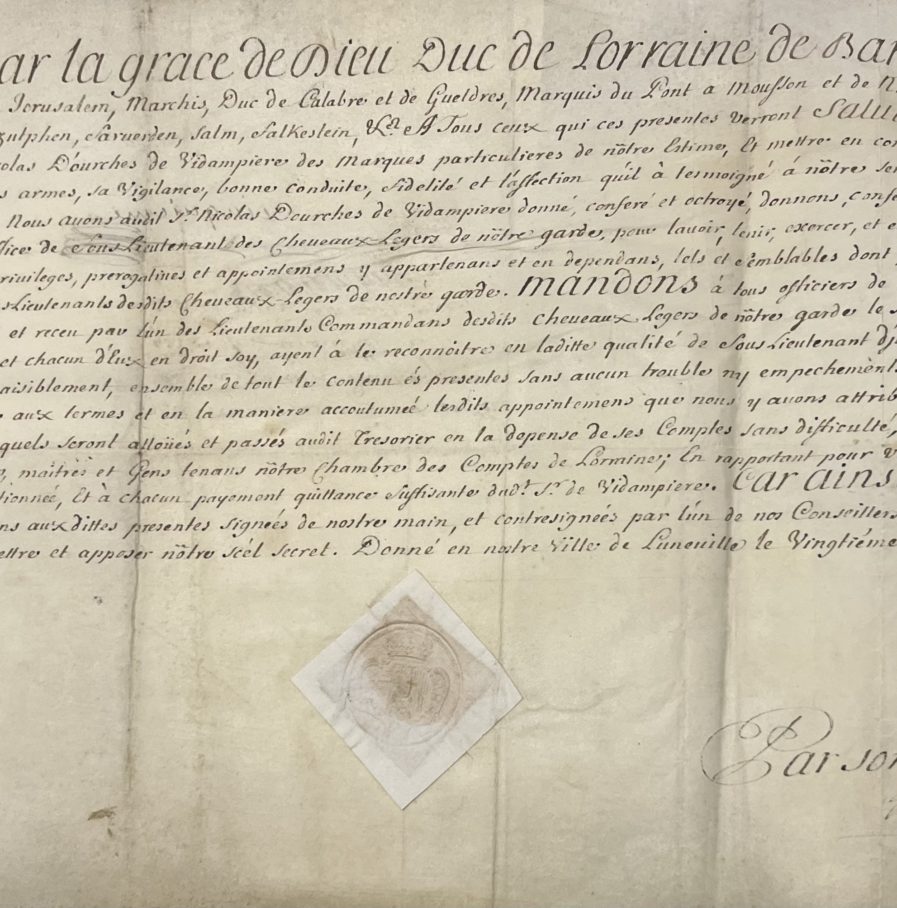 ar la grace de Dieu Duc de Lorraine de Bar
Jerusalem, Marchis, Duc de Calabre et de Gueldres, Marquis du Pont a Mousson et de N
Zutphen, Saruerden, Salm, Falkestein, &ca A Tous ceux qui ces presentes verront Salu
colas D'ourches de Vidampiere des Marques particulieres de nôtre Estime, Et mettre en con
s armes, sa Vigilance, bonne conduite, fidelité et l'affection quil à tesmoigné á nôtre ser
Nous avons audit Sr. Nicolas Dourches de Vidampiere donné, conferé et octroyé, donnons, confe
fice de Sous Lieutenant des Cheveaux Legers de nôtre garde, pour lavoir, tenir, exercer, et e
rivileges, prerogatives et appointemens y appartenans et en dependans, tels et semblables dont
s Lieutenants desdits Cheveaux-Legers de nostre garde. Mandons à tous officiers de
et receu par lún des Lieutenants Commandans desdits Cheveaux Legers de nôtre garde le s
et chacun d'Eux en droit soy, ayent á le reconnoitre en laditte qualité de Sous Lieutenant
aisiblement, ensemble de tout le contenu és presentes sans aucun trouble ny empechements
aux termes et en la maniere accoutumeé lesdits appointemens que nous y avons attrib
quels seront alloüés et passés audit Tresorier en la depense de ses Comptes sans difficulté,
maitres et Gens tenans nôtre Chambre des Comptes de Lorraine; En rapportant pour
tionneé, Et à chacun payement quittance suffisante dudt. Sr. de Vidampiere. Car ains
ns aux dittes presentes signeés de nostre main, et contresigneés par lún de nos Conseillers
ettre et apposer nôtre scél secret. Donné en nostre Ville de Luneuille le Vingtiéme
Par son